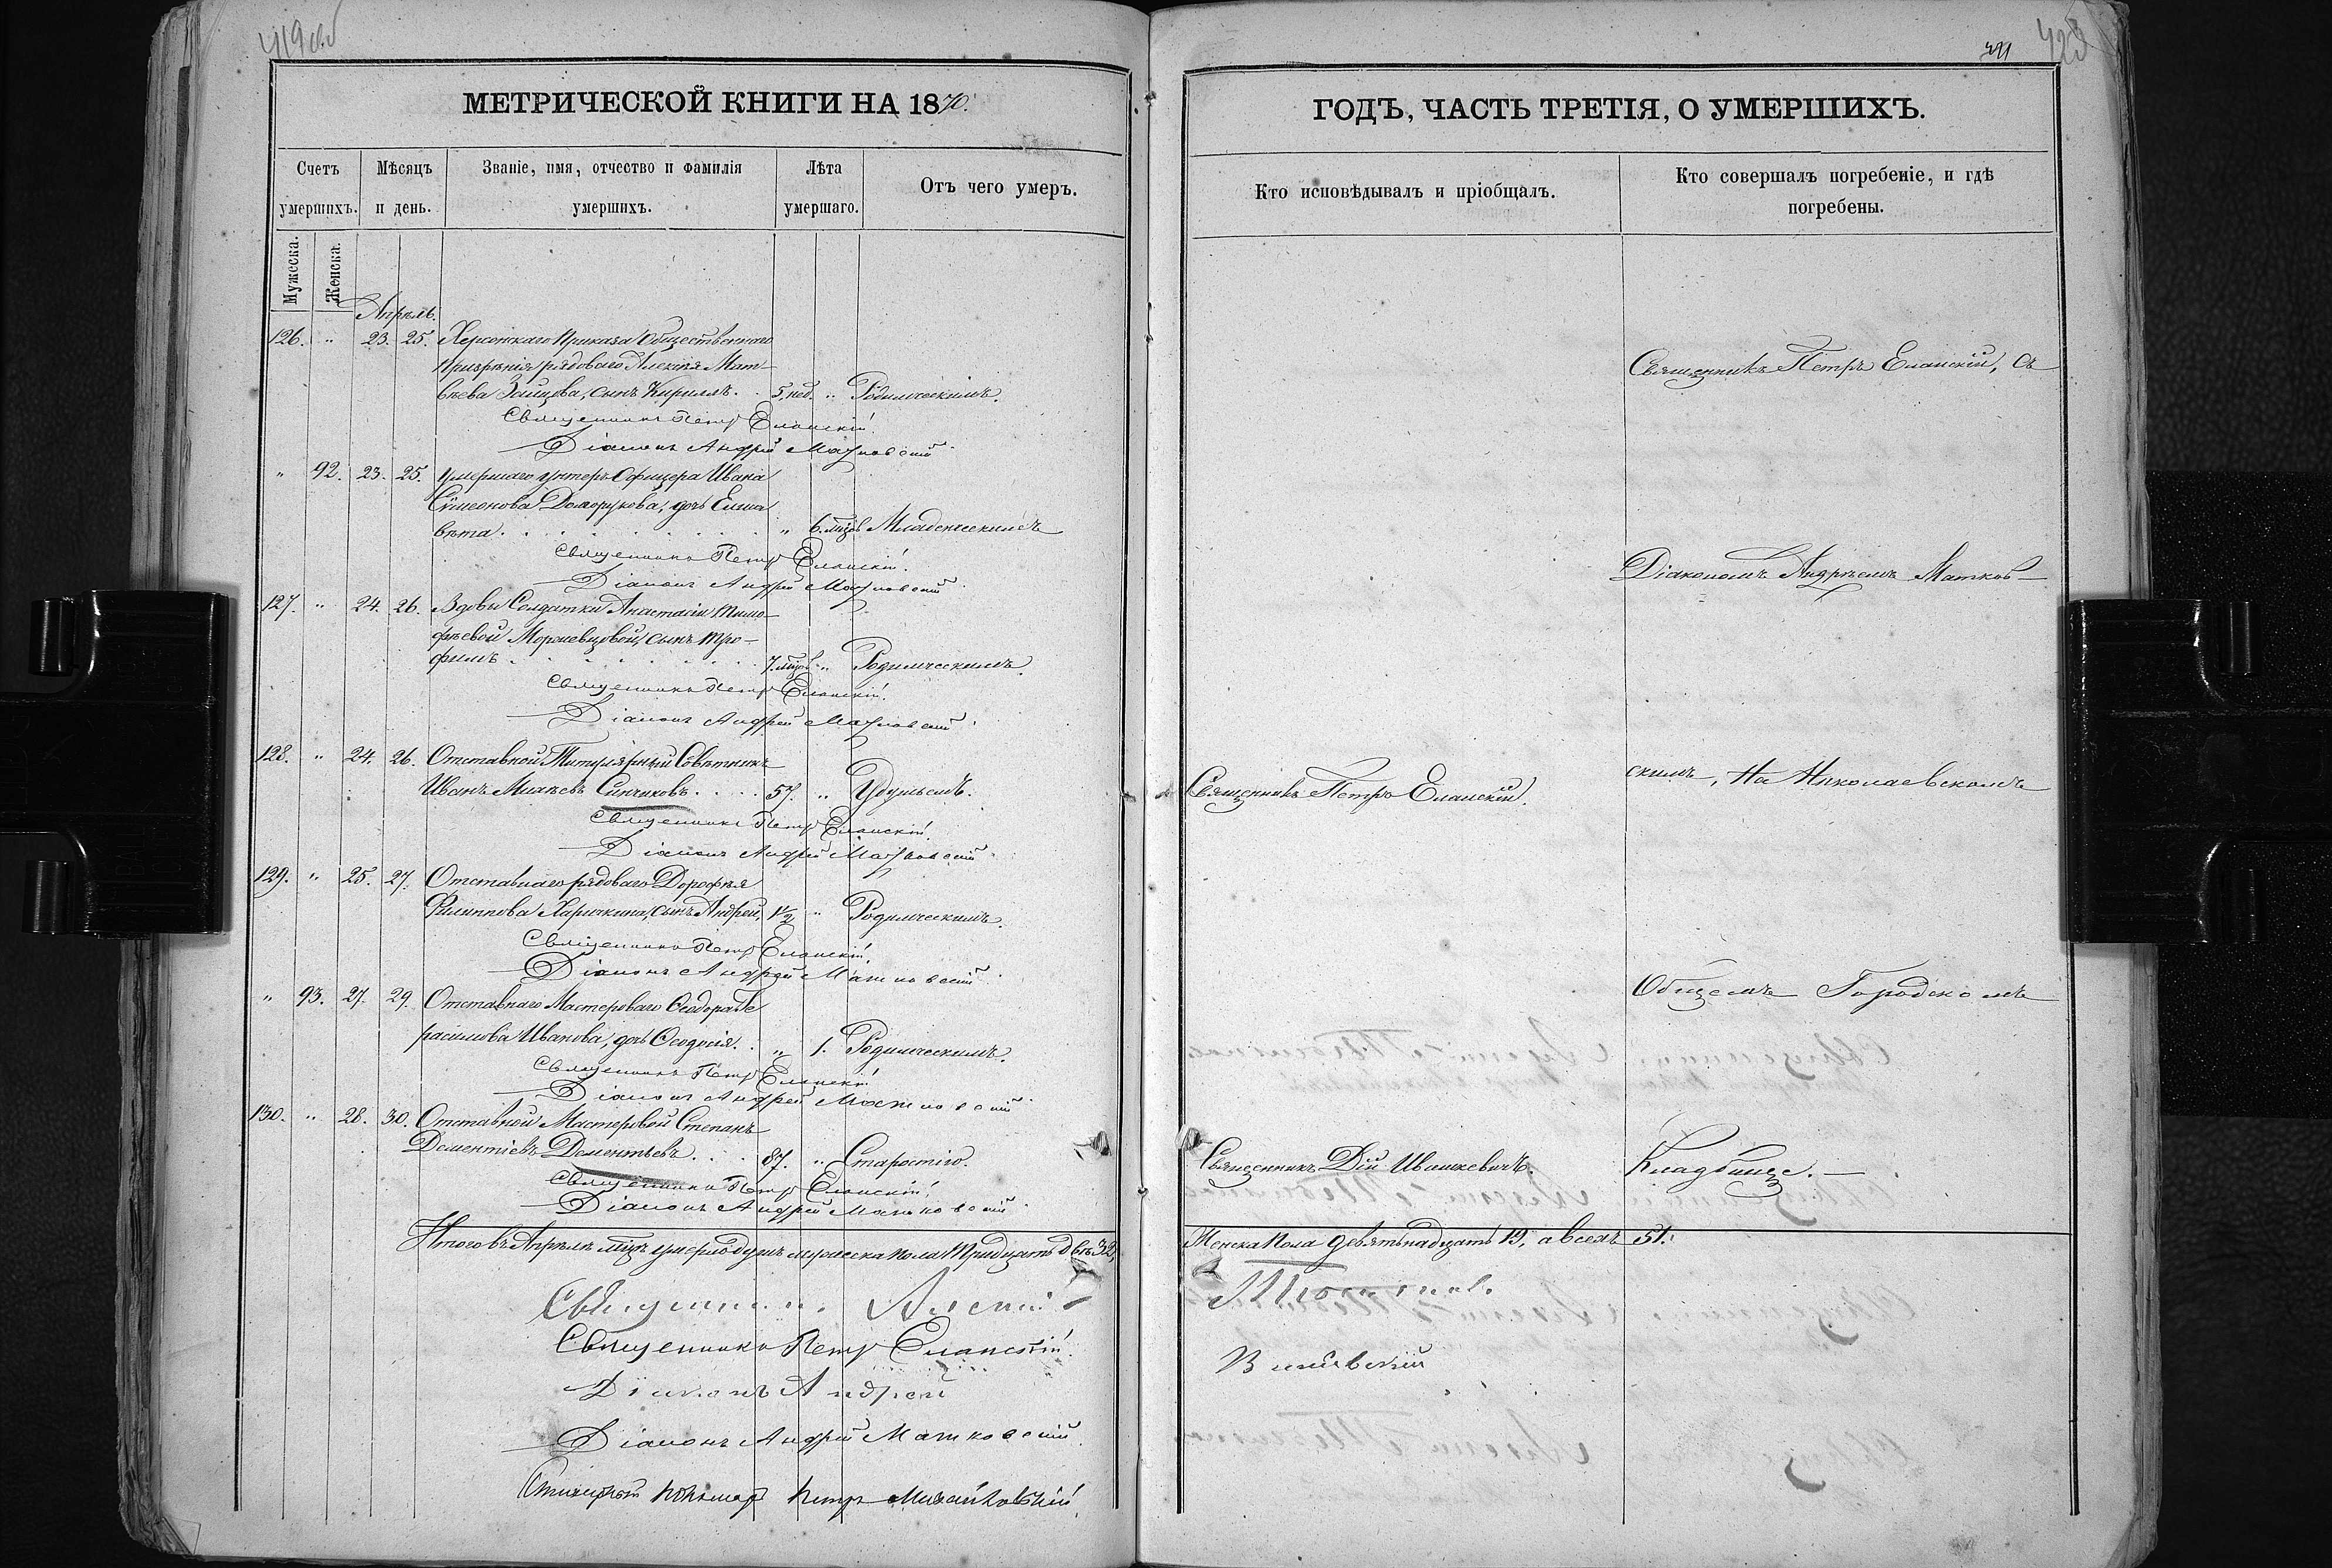 419 об
МЕТРИЧЕСКОЙ КНИГИ НА 1870.
Счетъ умершихъ.
Мѣсяцъ и день.
Званіе, имя, отчество и фамилія умершихъ.
Лѣта умершаго.
Отъ чего умеръ.
Мужеска.
Женска.
Апрѣль.
126. " 23. 25. Херсонскаго Приказа Общественнаго
призрѣнія рядоваго Алексѣя Мат-
вѣева Зайцова, сынъ Кириллъ. . 5. нед. " Родимческимъ.
Священникъ Петръ Еланскій.
Діаконъ Андрей Матковскій
" 92. 23. 25. Умершаго унтеръ-Офицера Ивана
Сѵмеонова Долорукова, дочь Елиса
вета. " 6. мцов Младенческимъ
Священникъ Петръ Еланскій.
Діаконъ Андрей Матковскій
127. " 24. 26. Вдовы Солдатки Анастасіи Тимо-
фѣевой сынъ Тро-
фимъ 7. мцов " Родимческимъ
Священникъ Петръ Еланскій.
Діаконъ Андрей Матковскій
128. " 24. 26. Отставной Титулярный Совѣтникъ
Иванъ Синчиковъ. 57. " Удушьемъ.
Священникъ Петръ Еланскій.
Діаконъ Андрей Матковскій
129. " 25. 27. Отставнаго рядоваго Дорофѣя
Филиппова Харичкина, сынъ Андрей, 1½ " Родимческимъ.
Священникъ Петръ Еланскій.
Діаконъ Андрей Матковскій
" 93. 27. 29. Отставнаго Мастероваго Ѳеодора Ге
расимова Иванова, дочь Ѳеодосія. " 1. Родимческимъ.
Священникъ Петръ Еланскій
Діаконъ Андрей Матковскій
130. " 28. 30. Отставной Мастеровой Степанъ
Дементіевъ Дементьевъ. 87. " Старостію.
Священникъ Петръ Еланскій.
Діаконъ Андрей Матковскій
Итого въ Апрѣлѣ мцѣ умерло душъ мужеска пола тридцать двѣ 32,
Священникъ Алексій
Священникъ Петръ Еланскій.
Діаконъ Андрей
Діаконъ Андрей Матковскій
Петръ Михайловскій
423
ГОДЪ, ЧАСТЬ ТРЕТІЯ, О УМЕРШИХЪ.
Кто исповѣдывалъ и пріобщалъ.
Кто совершалъ погребеніе, и гдѣ погребены.
Священникъ Петръ Еланскій, съ
Діакономъ Андреемъ Матков-
скимъ, На Николаевскомъ
Священникъ Петръ Еланскій.
Общемъ Городскомъ
Священникъ Дій Ивашкевичъ.
Кладбище. —
Женска пола девятьнадцать 19, а всехъ 51.